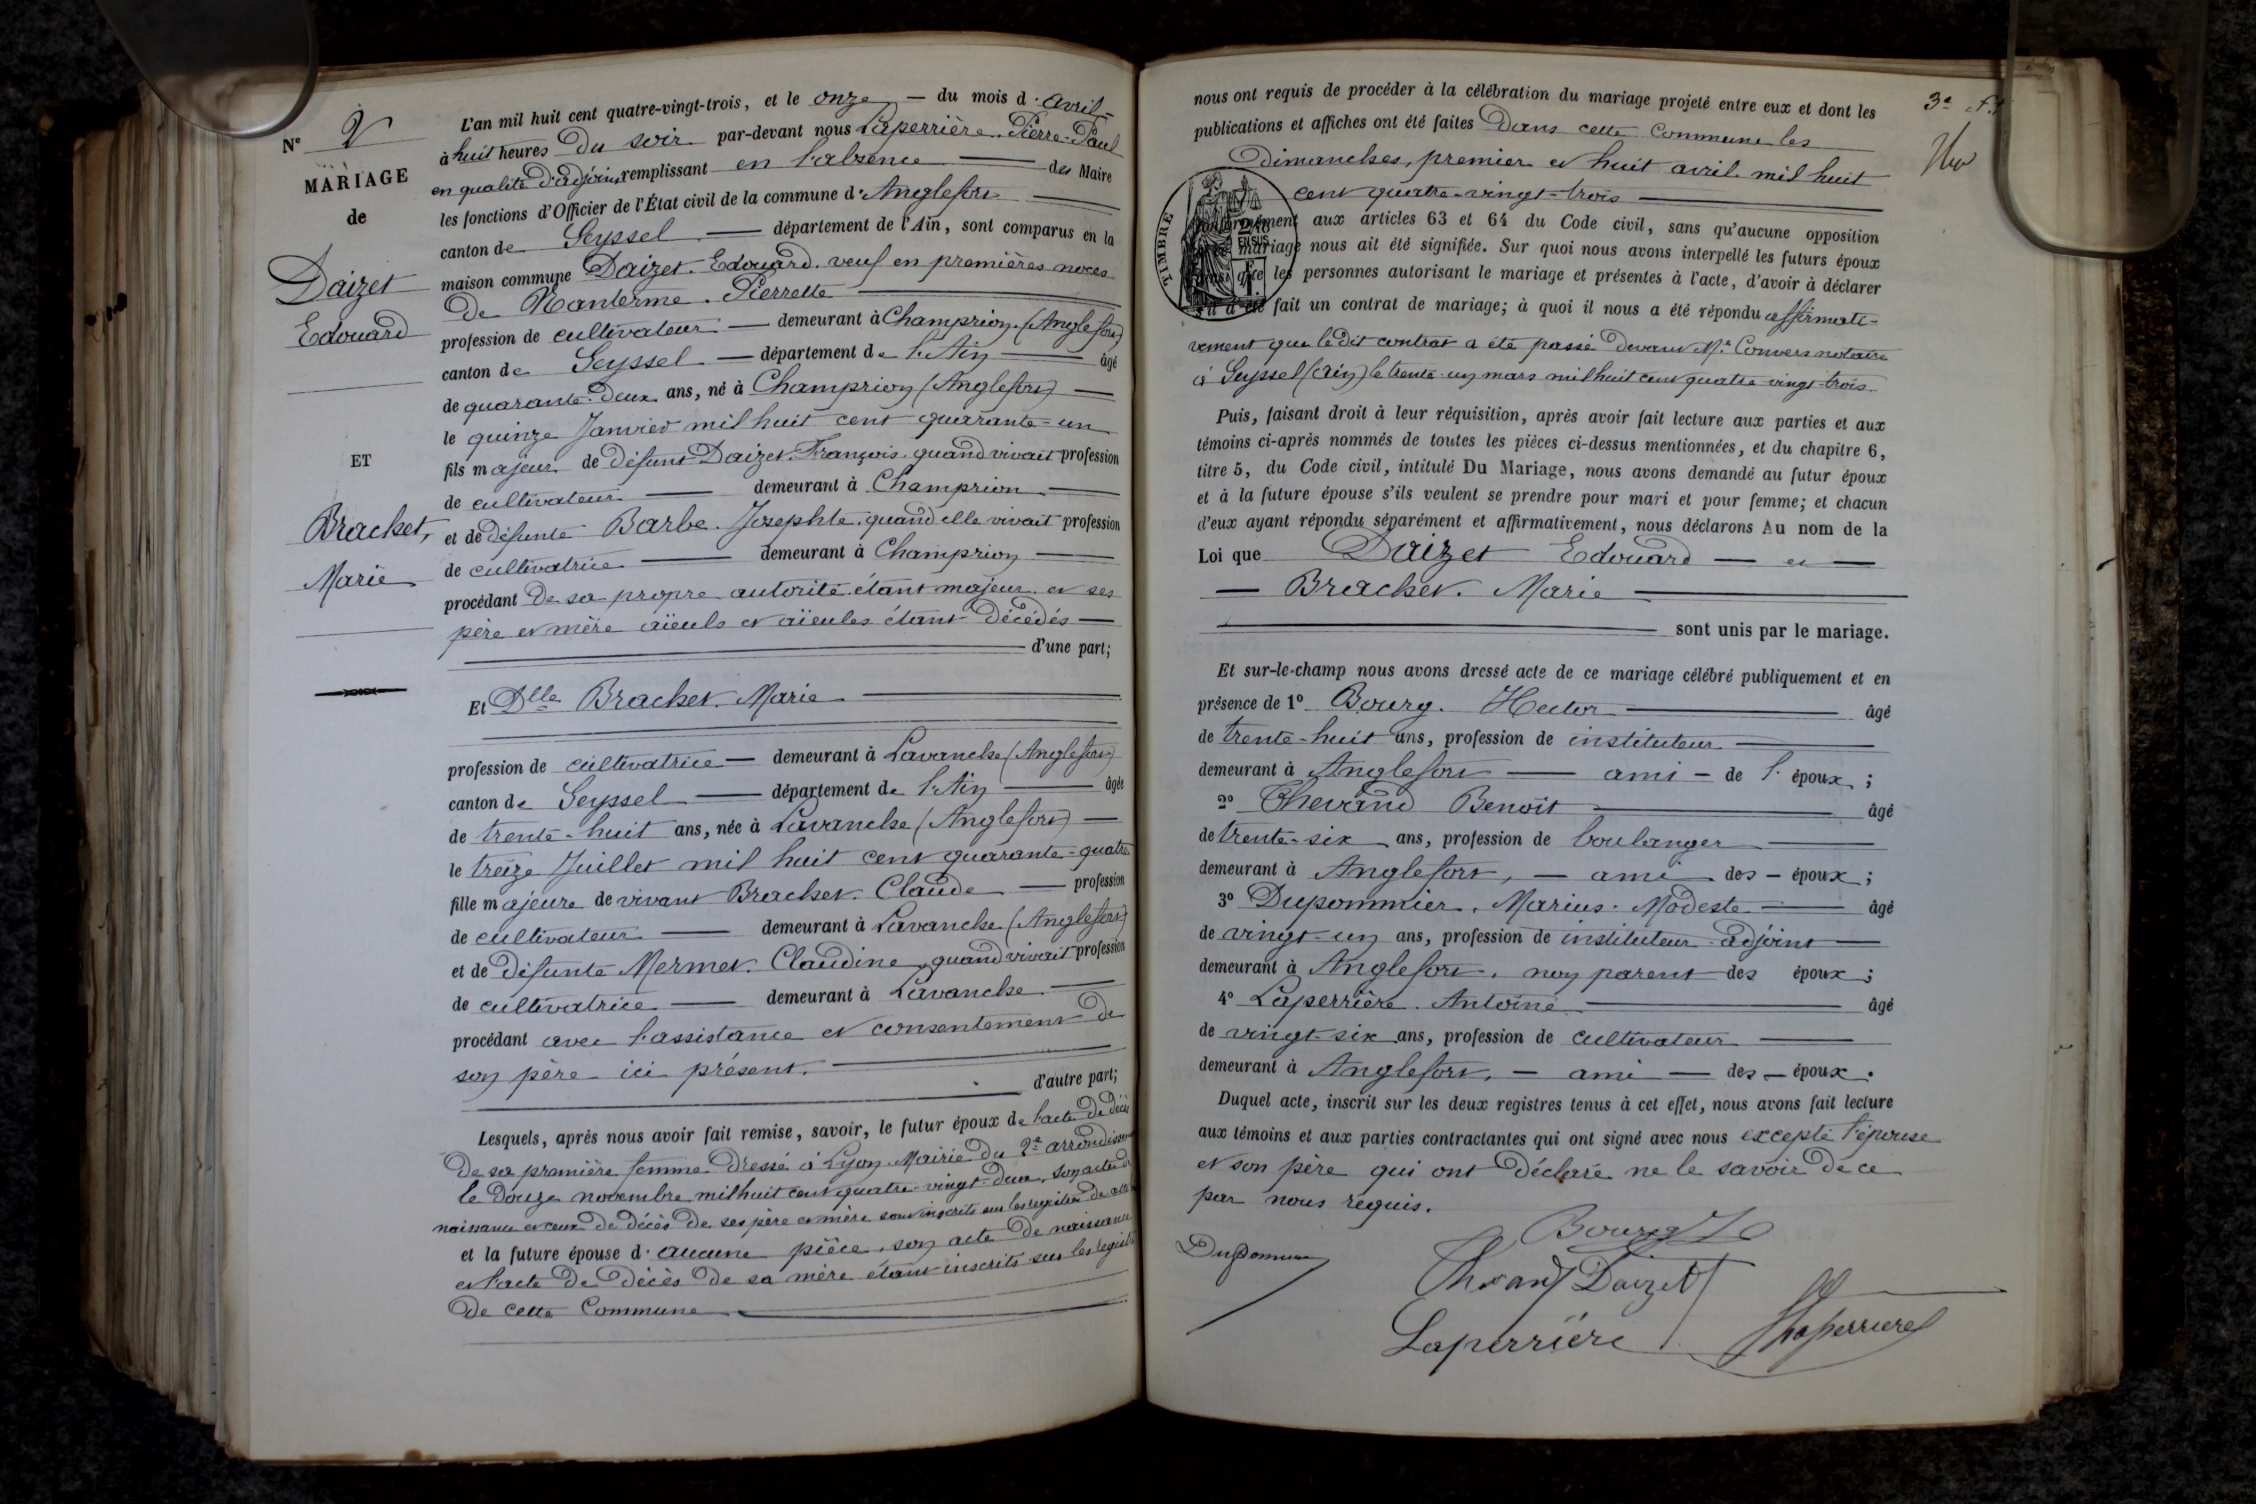 N° 2
MARIAGE
de
Daizet
Edouard
ET
Brachet,
Marie
L'an mil huit cent quatre-vingt-trois, et le onze — du mois d'avril
à huit heures du soir par-devant nous Laperrière Pierre-Paul
en qualité d'adjoint remplissant en l'absence — des Maire
les fonctions d'Officier de l'État civil de la commune d'Anglefort
canton de Seyssel — département de l'Ain, sont comparus en la
maison commune Daizet Edouard veuf en premières noces
de Nanterme Pierrette
profession de cultivateur — demeurant à Champrion (Anglefort)
canton de Seyssel — département de l'Ain — âgé
de quarante-deux ans, né à Champrion (Anglefort) —
le quinze Janvier mil huit cent quarante-un
fils majeur de défunt Daizet François quand vivait profession
de cultivateur — demeurant à Champrion —
et de défunte Barbe Josephte quand elle vivait profession
de cultivatrice — demeurant à Champrion —
procédant de sa propre autorité étant majeur et ses
père et mère aïeuls et aïeules étant décédés —
d'une part;
Et Dlle Brachet Marie
profession de cultivatrice — demeurant à Lavanche (Anglefort)
canton de Seyssel — département de l'Ain — âgée
de trente-huit ans, née à Lavanche (Anglefort) —
le treize Juillet mil huit cent quarante-quatre
fille majeure de vivant Brachet Claude — profession
de cultivateur — demeurant à Lavanche (Anglefort)
et de défunte Mermet Claudine quand vivait profession
de cultivatrice — demeurant à Lavanche —
procédant avec l'assistance et consentement de
son père ici présent.
d'autre part;
Lesquels, après nous avoir fait remise, savoir, le futur époux de l'acte de décès
de sa première femme dressé à Lyon Mairie du 2e arrondissem
le douze novembre mil huit cent quatre-vingt-deux, son acte de
naissance et ceux de décès de ses père et mère sont inscrits sur les registres de
et la future épouse d'aucune pièce, son acte de naissance
et l'acte de décès de sa mère étant inscrits sur les registres
de cette Commune
3e
nous ont requis de procéder à la célébration du mariage projeté entre eux et dont les
publications et affiches ont été faites Dans cette Commune les
Dimanches, premier et huit avril mil huit
cent quatre-vingt-trois
TIMBRE
EN SUS
conformément aux articles 63 et 64 du Code civil, sans qu'aucune opposition
mariage nous ait été signifiée. Sur quoi nous avons interpellé les futurs époux
ainsi que les personnes autorisant le mariage et présentes à l'acte, d'avoir à déclarer
s'il a été fait un contrat de mariage; à quoi il nous a été répondu affirmati-
vement que ledit contrat a été passé devant Me Convers notaire
à Seyssel (Ain) le trente-un mars mil huit cent quatre-vingt-trois
Puis, faisant droit à leur réquisition, après avoir fait lecture aux parties et aux
témoins ci-après nommés de toutes les pièces ci-dessus mentionnées, et du chapitre 6,
titre 5, du Code civil, intitulé Du Mariage, nous avons demandé au futur époux
et à la future épouse s'ils veulent se prendre pour mari et pour femme; et chacun
d'eux ayant répondu séparément et affirmativement, nous déclarons Au nom de la
Loi que Daizet Edouard — et —
— Brachet Marie
sont unis par le mariage.
Et sur-le-champ nous avons dressé acte de ce mariage célébré publiquement et en
présence de 1° Bourg Hector — âgé
de trente-huit ans, profession de instituteur
demeurant à Anglefort — ami — de l'époux;
2° Thevand Benoît — âgé
de trente-six ans, profession de boulanger
demeurant à Anglefort, — ami des — époux;
3° Dupommier, Marius Modeste — âgé
de vingt-un ans, profession de instituteur adjoint
demeurant à Anglefort, non parent des époux;
4° Laperrière Antoine — âgé
de vingt-six ans, profession de cultivateur
demeurant à Anglefort, — ami — des — époux.
Duquel acte, inscrit sur les deux registres tenus à cet effet, nous avons fait lecture
aux témoins et aux parties contractantes qui ont signé avec nous excepté l'épouse
et son père qui ont déclaré ne le savoir de ce
par nous requis.
Bourg H
Dupommier
Thevand Daizet
Laperrière
Laperrière